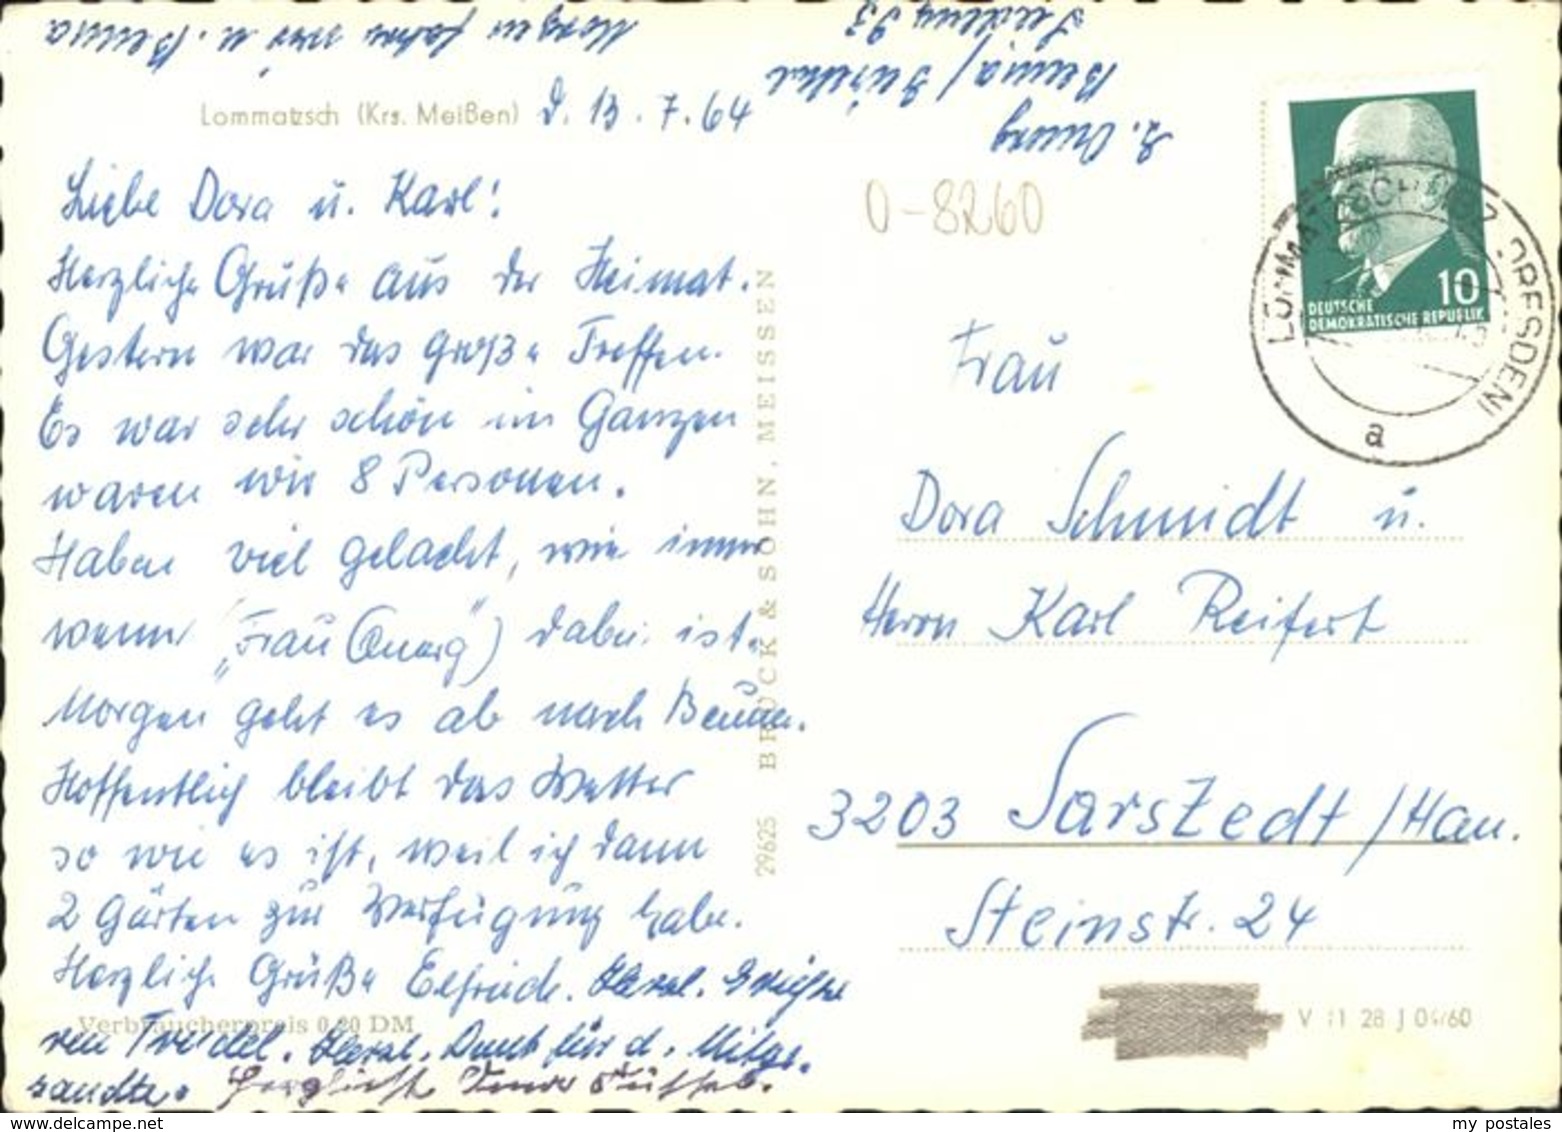 Morgen fahren wir n. Benna
Lommatzsch (Krs. Meißen) d. 13.7.64
Liebe Dora u. Karl!
Herzliche Grüße aus der Heimat.
Gestern war das große Treffen.
Es war sehr schön im Ganzen
waren wir 8 Personen.
Haben viel gelacht, wie immer
wenn „Frau Quarg“) dabei ist.
Morgen geht es ab nach Benna.
Hoffentlich bleibt das Wetter
so wie es ist, weil ich dann
2 Gärten zur Verfügung habe.
Herzliche Grüße Elfriede. Herzl. Grüße
von Trudel. Herzl. Dank für d. Mitge-
sandte. Herzliche
Verbraucherpreis 0,20 DM
29625 BRÜCK & SOHN, MEISSEN
Quarg
Benna /
Siedlung 93
0-8260
10
DEUTSCHE
DEMOKRATISCHE REPUBLIK
LOMMATZSCH (BZ. DRESDEN)
a
Frau
Dora Schmidt u.
Herrn Karl Reifert
3203 Sarstedt / Han.
Steinstr. 24
V 11 28 J 04/60
my postales